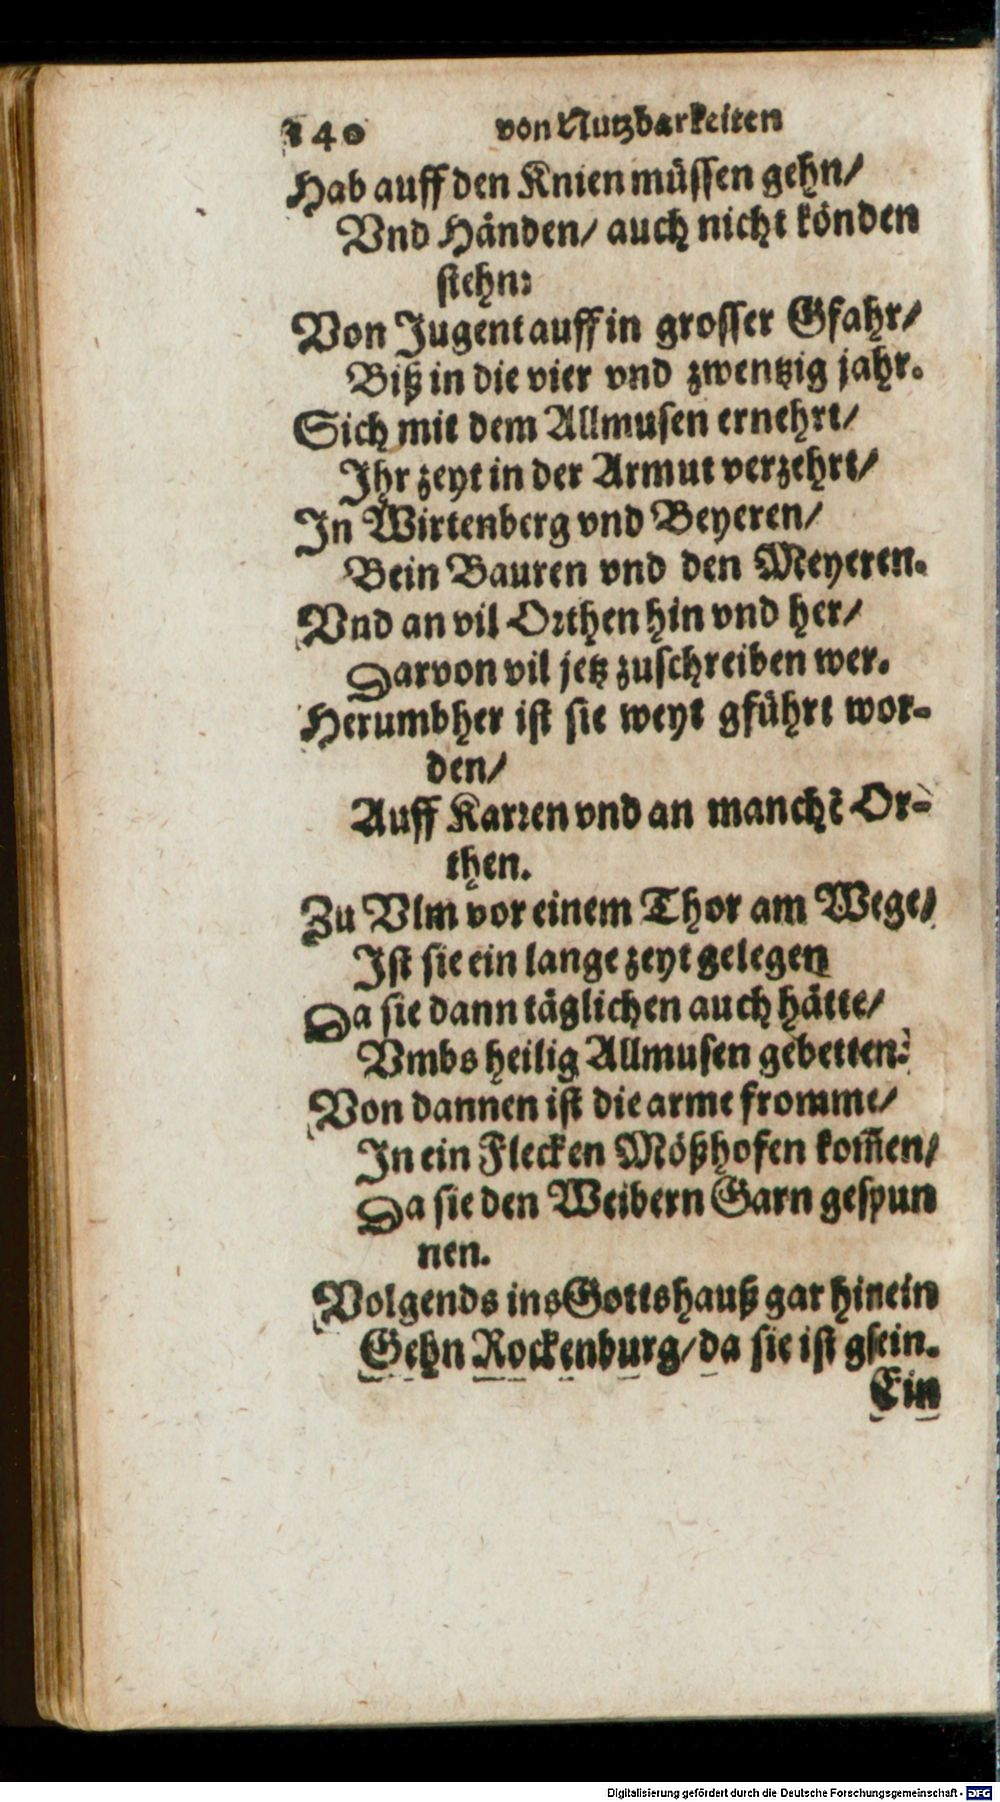 140 von Nutzbarkeiten
Hab auff den Knien müssen gehn/
Vnd Händen/ auch nicht könden
stehn:
Von Jugent auff in grosser Gfahr/
Biß in die vier vnd zwentzig jahr.
Sich mit dem Allmusen ernehrt/
Ihr zeyt in der Armut verzehrt/
In Wirtenberg vnd Beyeren/
Bein Bauren vnd den Meyeren.
Vnd an vil Orthen hin vnd her/
Darvon vil jetz zuschreiben wer.
Herumbher ist sie weyt gführt wor-
den/
Auff Karren vnd an manchẽ Or-
then.
Zu Vlm vor einem Thor am Wege/
Ist sie ein lange zeyt gelegen
Da sie dann täglichen auch hätte/
Vmbs heilig Allmusen gebetten:
Von dannen ist die arme fromme/
In ein Flecken Mößhofen kom̃en/
Da sie den Weibern Garn gespun
nen.
Volgends ins Gottshauß gar hinein
Gehn Rockenburg/ da sie ist gsein.
Ein
Digitalisierung gefördert durch die Deutsche Forschungsgemeinschaft - DFG